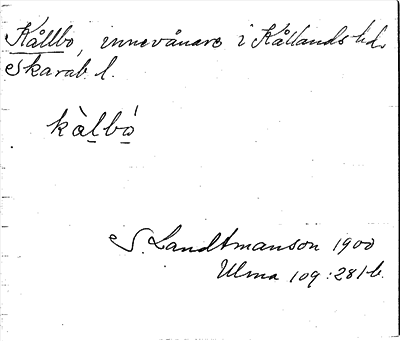 Kållbo, innevånare i Kållands hd.
Skarab. l.
kàlbó
S. Landtmanson 1900
Ulma 109:281 b.